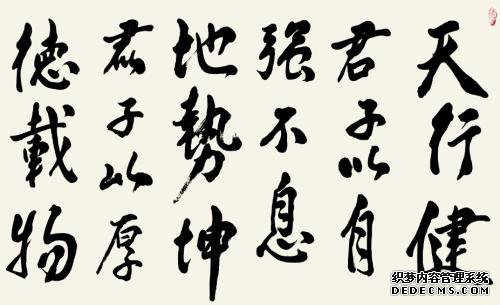 天行健
君子以自
强不息
地勢坤
君子以厚
德載物
织梦内容管理系统
DEDECMS.COM